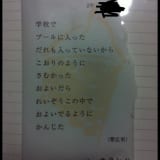 学校で
プールに入った
だれも入っていないから
こおりのように
さむかった
およいだら
れいぞうこの中で
およいでるように
かんじた